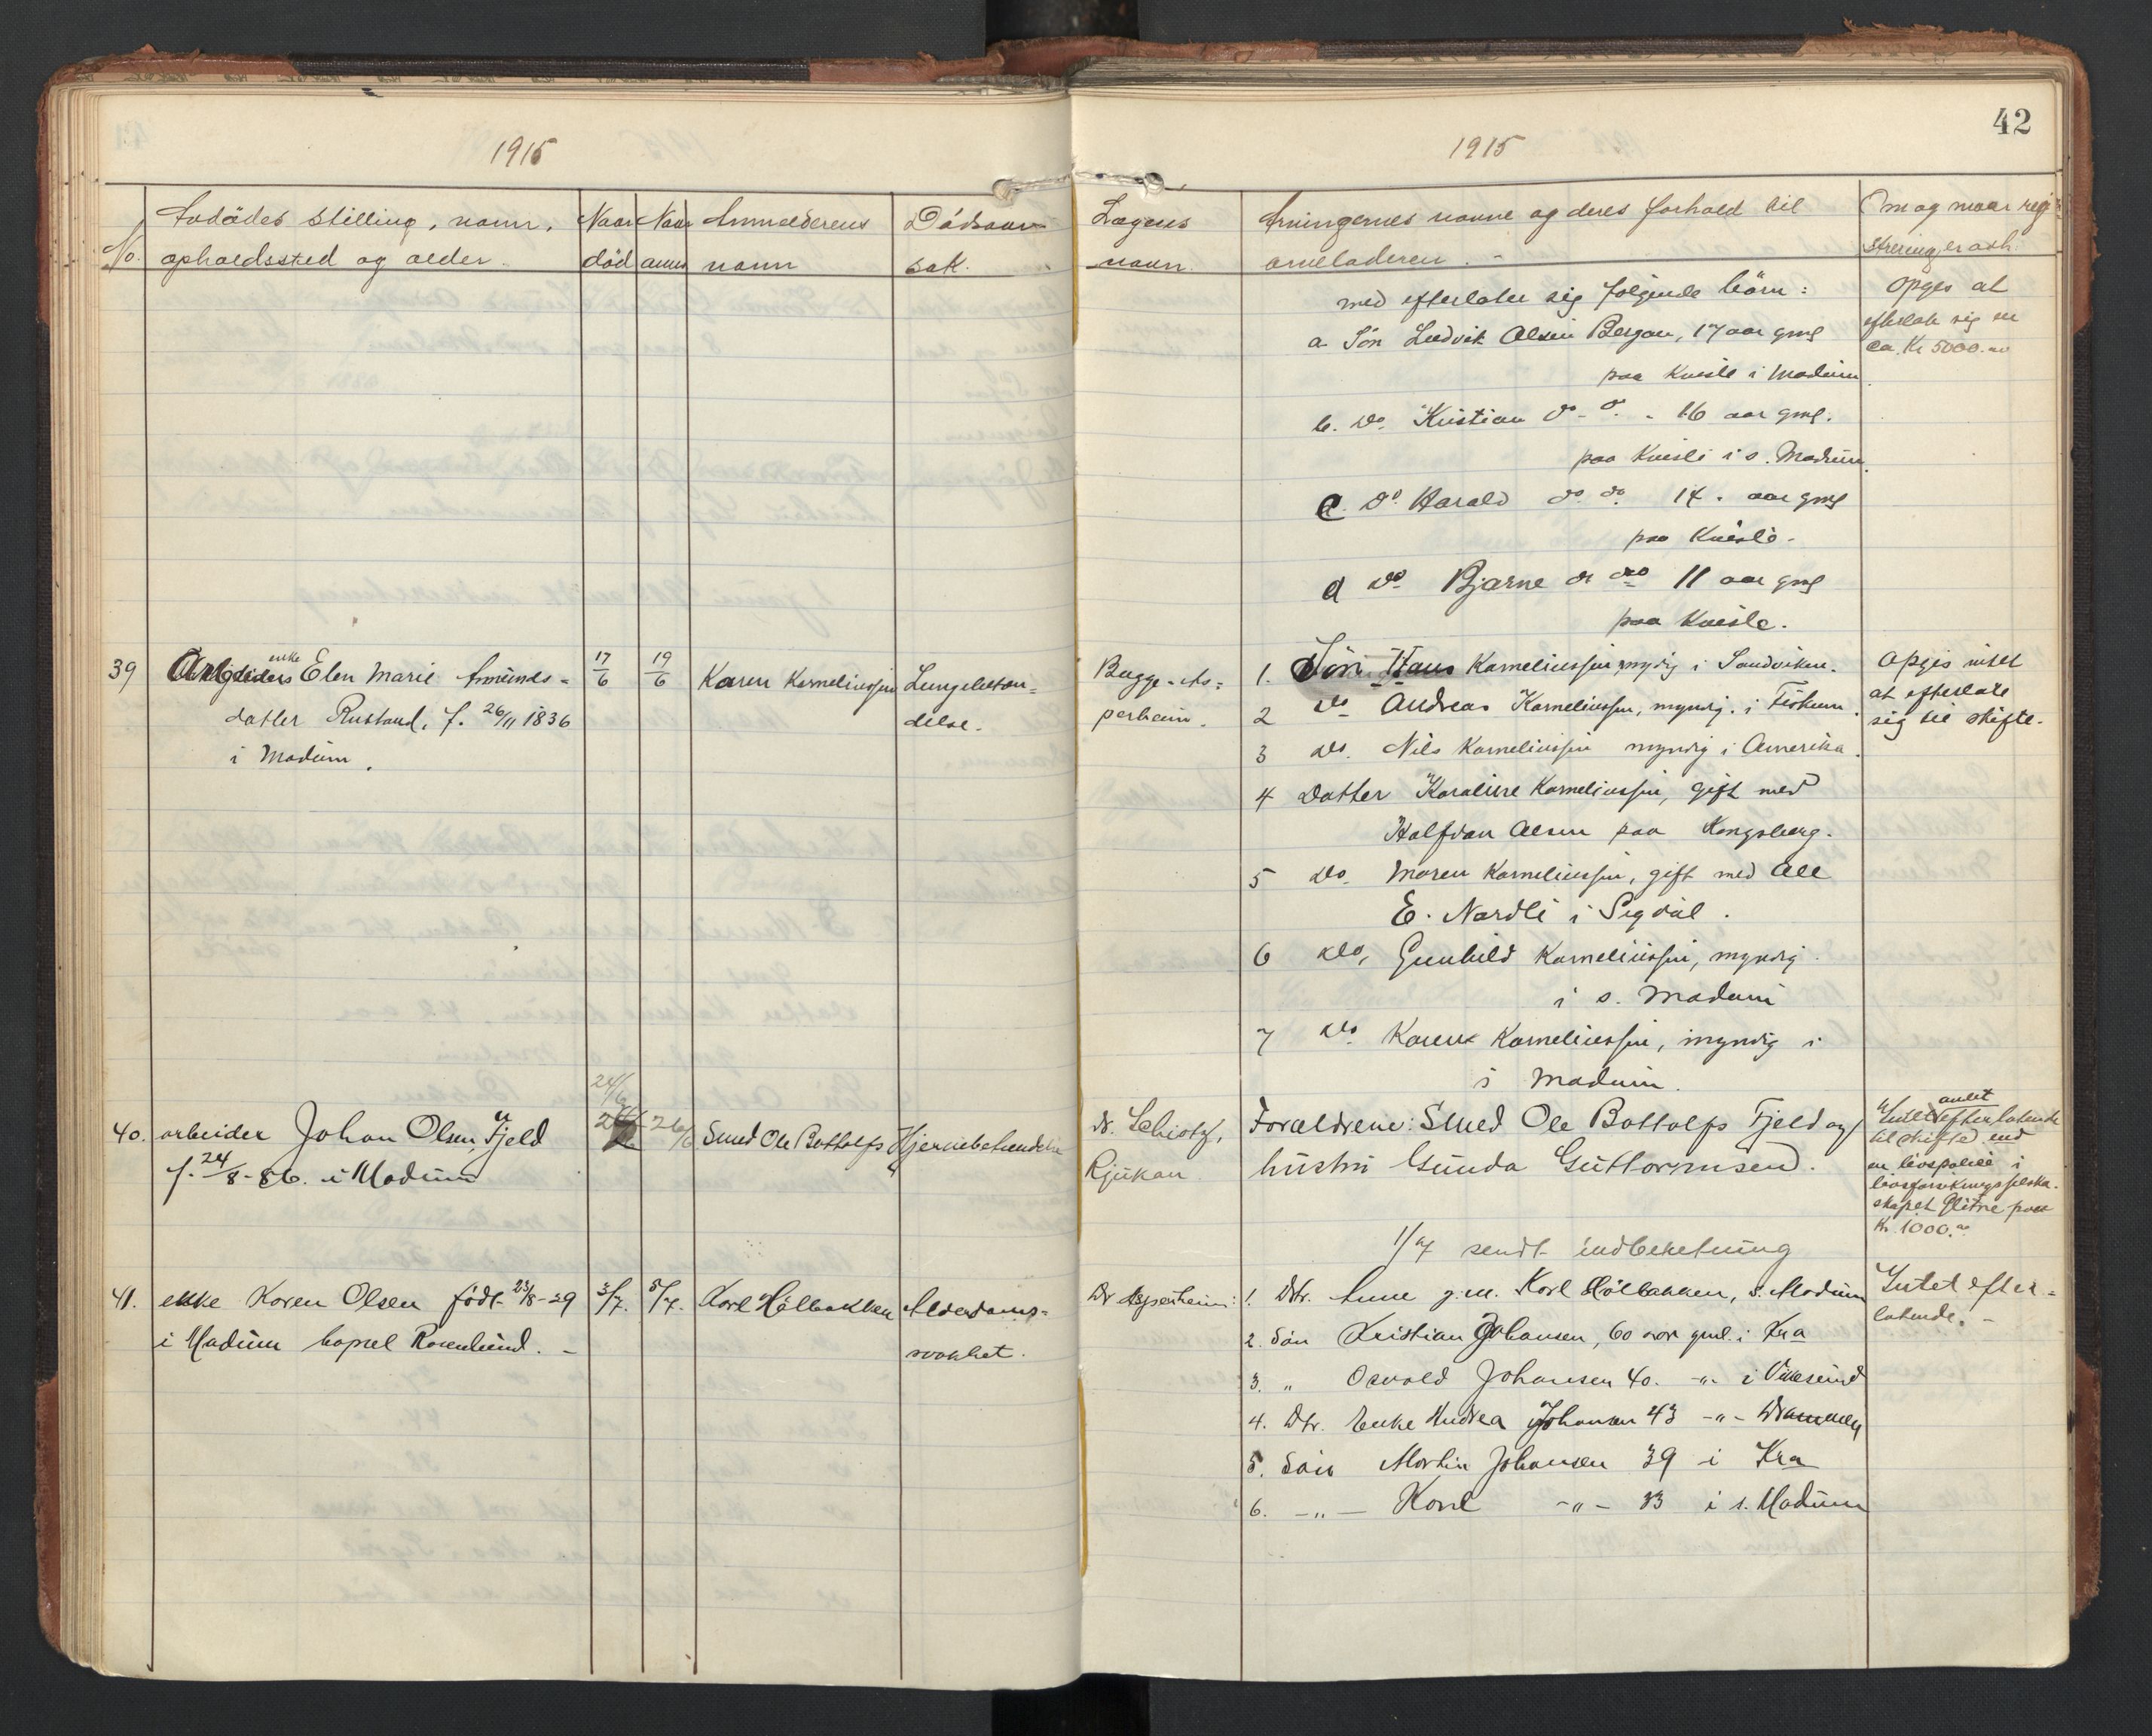 42
1915
1915
No.
Avdødes stilling, navn,
opholdssted og alder.
Naar
død
Naar
anm.
Anmelderens
navn
Dødsaar-
sak.
Lægens
navn.
Arvingernes navne og deres forhold til
arveladeren.
Om og naar regi
strering er avh.
med efterlater sig følgende børn:
a. Søn Ludvik Olsen Bergan, 17 aar gml
paa Kvisle i Modum.
b. do. Kristian do - do. - 16 aar gml.
paa Kvisle i s. Modum.
c. do Harald do. do. 14. aar gml
paa Kvisle.
d do Bjarne do do 11 aar gml
paa Kvisle.
Opges at
efterlate sig en
ca. Kr 5000.00
39
enke Elen Marie Amunds-
datter Rustand, f. 26/11 1836
i Modum.
17/6
19/6
Karen Korneliussen
Lungebeten-
delse.
Bugge-As-
perheim.
1. Søn Hans Korneliussen, myndig i Sandviken.
2 do Andreas Korneliussen, myndig. i Fiskum.
3 do. Nils Korneliussen myndig i Amerika.
4 Datter Karoline Korneliussen, gift med
Halfdan Olsen paa Kongsberg.
5 do. Maren Korneliussen, gift med Ole
E. Nordli i Sigdal.
6 do, Gunhild Korneliussen, myndig
i s. Modum
7 do. Karen Korneliussen, myndig i
i Modum.
Opgis intet
at efterlate
sig til skifte.
40. arbeider Johan Olsen, Fjeld
f. 24/8-86. i Modum
24/6
26/6
Smed Ole Bottolfs
Hjernebetændelse
dr. Schiøtz,
Rjukan.
Forældrene: Smed Ole Bottolfs Fjeld og
hustru Gunda Guttormsen.
1/7 sendt indberetning
Intet andet efterlatende
til skifte end
en livspolice i
livsforsikringsselska-
skapet Glitne paa
Kr. 1000.00
41. enke Karen Olsen født 23/8-29
i Modum bopæl Rosenlund. -
3/7.
5/7.
Karl Hølbakken
Alderdoms-
svakhet.
Dr Asperheim:
1. Dtr. Anne g. m. Karl Hølbakken, S. Modum
2. Søn Kristian Johansen, 60 aar gml. i Kra
3. „ Osvald Johansen 40. -„- i Vikesund
4. Dtr. Enke Andrea Johansen 43 -„- Drammen
5. Søn Martin Johansen 39 i Kra
6. -„- Karl -„- 33 i s. Modum
Intet efter-
latende. -